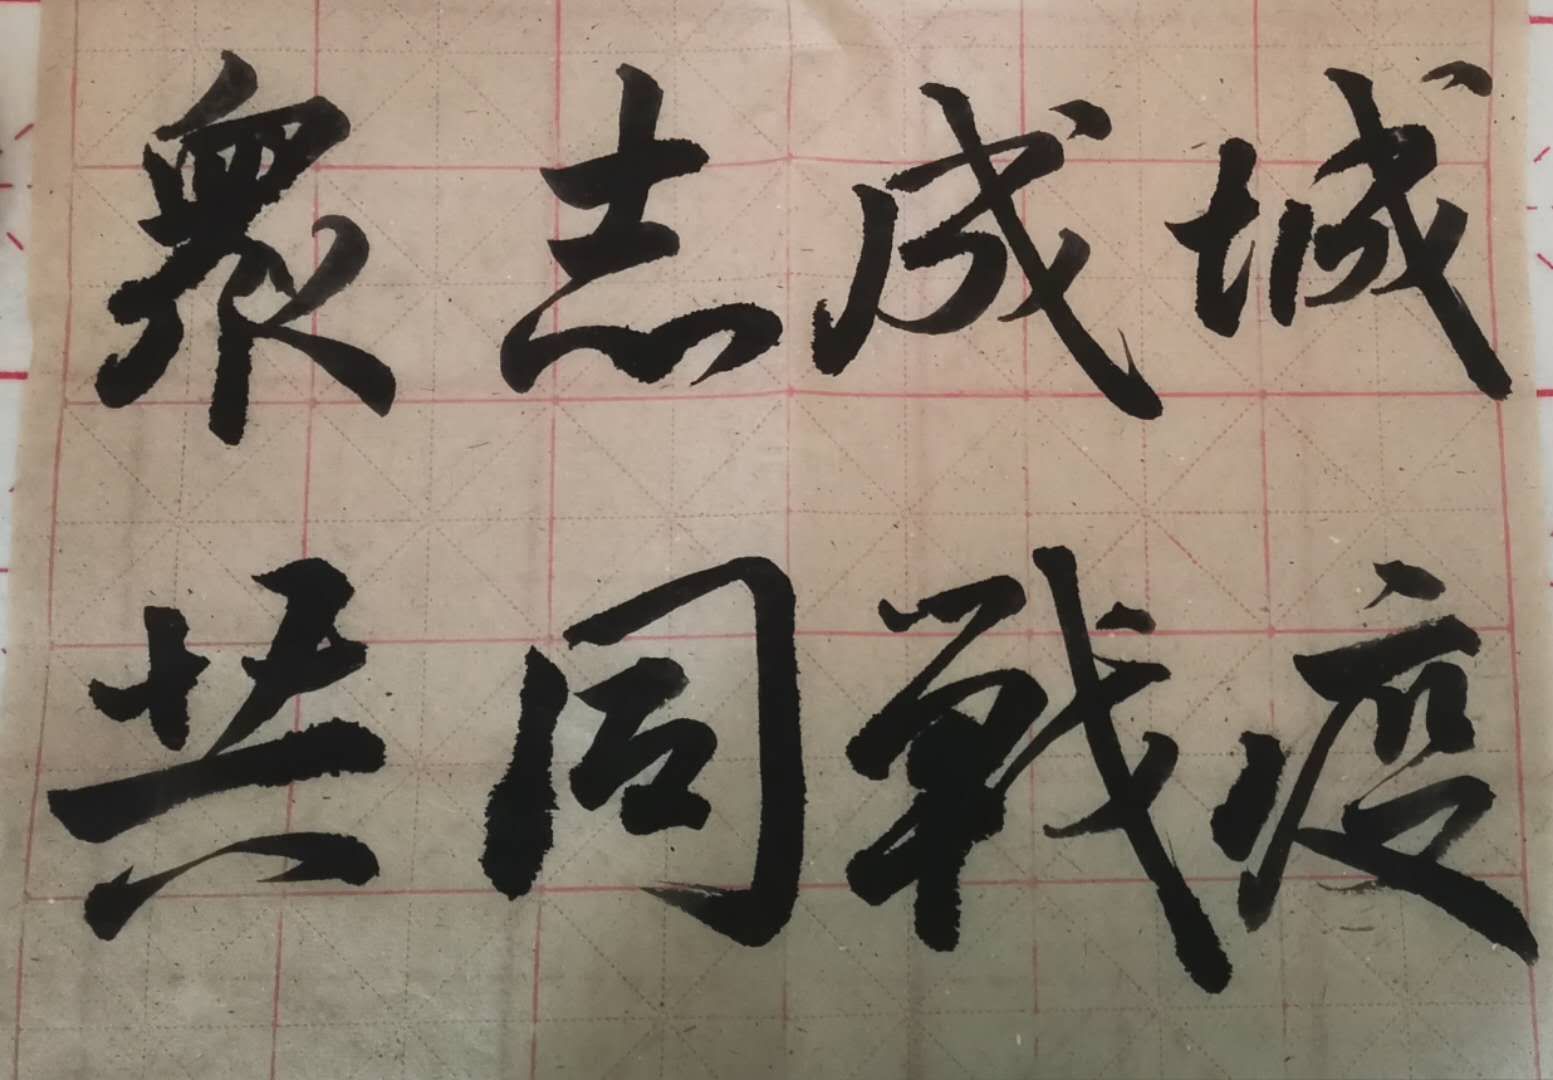 眾志成城
共同戰疫